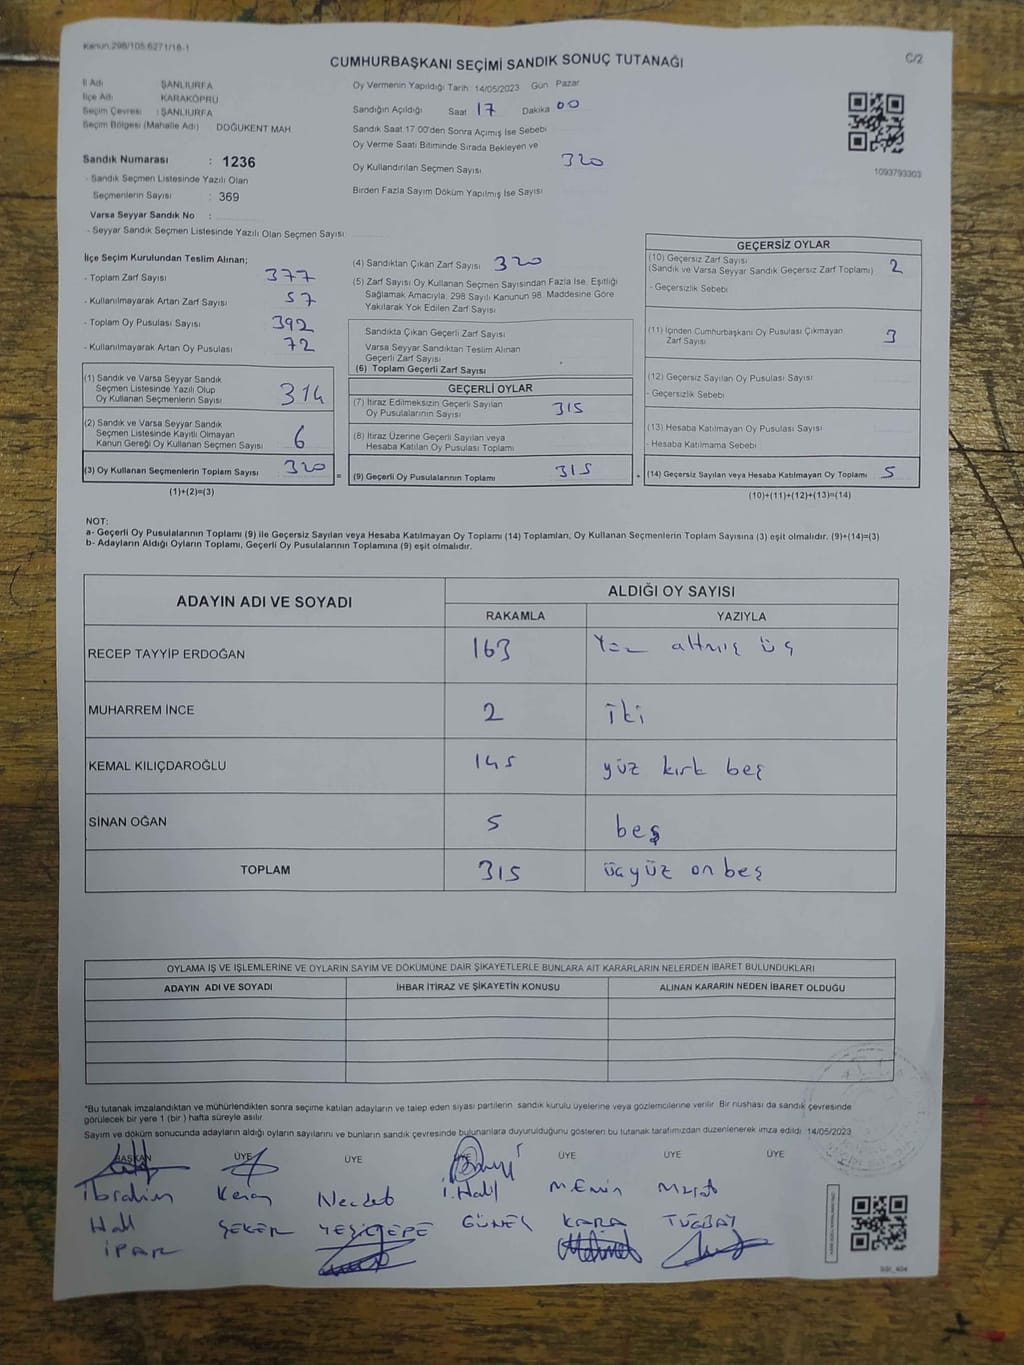 Kanun:298/105;6271/18-1
CUMHURBAŞKANI SEÇİMİ SANDIK SONUÇ TUTANAĞI
C/2
İl Adı : ŞANLIURFA
İlçe Adı : KARAKÖPRÜ
Seçim Çevresi : ŞANLIURFA
Seçim Bölgesi (Mahalle Adı) : DOĞUKENT MAH
Sandık Numarası : 1236
- Sandık Seçmen Listesinde Yazılı Olan
Seçmenlerin Sayısı : 369
Varsa Seyyar Sandık No :
- Seyyar Sandık Seçmen Listesinde Yazılı Olan Seçmen Sayısı:
Oy Vermenin Yapıldığı Tarih : 14/05/2023 Gün : Pazar
Sandığın Açıldığı Saat 17 Dakika 00
Sandık Saat 17:00'den Sonra Açımış İse Sebebi
Oy Verme Saati Bitiminde Sırada Bekleyen ve
Oy Kullandırılan Seçmen Sayısı 320
Birden Fazla Sayım Döküm Yapılmış İse Sayısı
1093793303
İlçe Seçim Kurulundan Teslim Alınan;
- Toplam Zarf Sayısı 377
- Kullanılmayarak Artan Zarf Sayısı 57
- Toplam Oy Pusulası Sayısı 392
- Kullanılmayarak Artan Oy Pusulası 72
(1) Sandık ve Varsa Seyyar Sandık
Seçmen Listesinde Yazılı Olup
Oy Kullanan Seçmenlerin Sayısı 314
(2) Sandık ve Varsa Seyyar Sandık
Seçmen Listesinde Kayıtlı Olmayan
Kanun Gereği Oy Kullanan Seçmen Sayısı 6
(3) Oy Kullanan Seçmenlerin Toplam Sayısı 320 =
(1)+(2)=(3)
(4) Sandıktan Çıkan Zarf Sayısı 320
(5) Zarf Sayısı Oy Kullanan Seçmen Sayısından Fazla İse, Eşitliği
Sağlamak Amacıyla, 298 Sayılı Kanunun 98. Maddesine Göre
Yakılarak Yok Edilen Zarf Sayısı
Sandıkta Çıkan Geçerli Zarf Sayısı
Varsa Seyyar Sandıktan Teslim Alınan
Geçerli Zarf Sayısı
(6) Toplam Geçerli Zarf Sayısı
GEÇERLİ OYLAR
(7) İtiraz Edilmeksizin Geçerli Sayılan
Oy Pusulalarının Sayısı 315
(8) İtiraz Üzerine Geçerli Sayılan veya
Hesaba Katılan Oy Pusulası Toplamı
(9) Geçerli Oy Pusulalarının Toplamı 315 +
GEÇERSİZ OYLAR
(10) Geçersiz Zarf Sayısı
(Sandık ve Varsa Seyyar Sandık Geçersiz Zarf Toplamı) 2
- Geçersizlik Sebebi
(11) İçinden Cumhurbaşkanı Oy Pusulası Çıkmayan
Zarf Sayısı 3
(12) Geçersiz Sayılan Oy Pusulası Sayısı
- Geçersizlik Sebebi
(13) Hesaba Katılmayan Oy Pusulası Sayısı
- Hesaba Katılmama Sebebi
(14) Geçersiz Sayılan veya Hesaba Katılmayan Oy Toplamı 5
(10)+(11)+(12)+(13)=(14)
NOT:
a- Geçerli Oy Pusulalarının Toplamı (9) ile Geçersiz Sayılan veya Hesaba Katılmayan Oy Toplamı (14) Toplamları, Oy Kullanan Seçmenlerin Toplam Sayısına (3) eşit olmalıdır. (9)+(14)=(3)
b- Adayların Aldığı Oyların Toplamı, Geçerli Oy Pusulalarının Toplamına (9) eşit olmalıdır.
ADAYIN ADI VE SOYADI
ALDIĞI OY SAYISI
RAKAMLA YAZIYLA
RECEP TAYYİP ERDOĞAN 163 Yüz altmış üç
MUHARREM İNCE 2 iki
KEMAL KILIÇDAROĞLU 145 yüz kırk beş
SİNAN OĞAN 5 beş
TOPLAM 315 üçyüz on beş
OYLAMA İŞ VE İŞLEMLERİNE VE OYLARIN SAYIM VE DÖKÜMÜNE DAİR ŞİKAYETLERLE BUNLARA AİT KARARLARIN NELERDEN İBARET BULUNDUKLARI
ADAYIN ADI VE SOYADI İHBAR İTİRAZ VE ŞİKAYETİN KONUSU ALINAN KARARIN NEDEN İBARET OLDUĞU
*Bu tutanak imzalandıktan ve mühürlendikten sonra seçime katılan adayların ve talep eden siyasi partilerin sandık kurulu üyelerine veya gözlemcilerine verilir. Bir nüshası da sandık çevresinde
görülecek bir yere 1 (bir) hafta süreyle asılır.
Sayım ve döküm sonucunda adayların aldığı oyların sayılarını ve bunların sandık çevresinde bulunanlara duyurulduğunu gösteren bu tutanak tarafımızdan düzenlenerek imza edildi. 14/05/2023
BAŞKAN ÜYE ÜYE ÜYE ÜYE ÜYE ÜYE
İbrahim Keray Necdet İ.Halil M.Emin Murat
Halil ŞEKER YEŞİLTEPE GÜNEŞ KARA TUĞBAY
İPAR